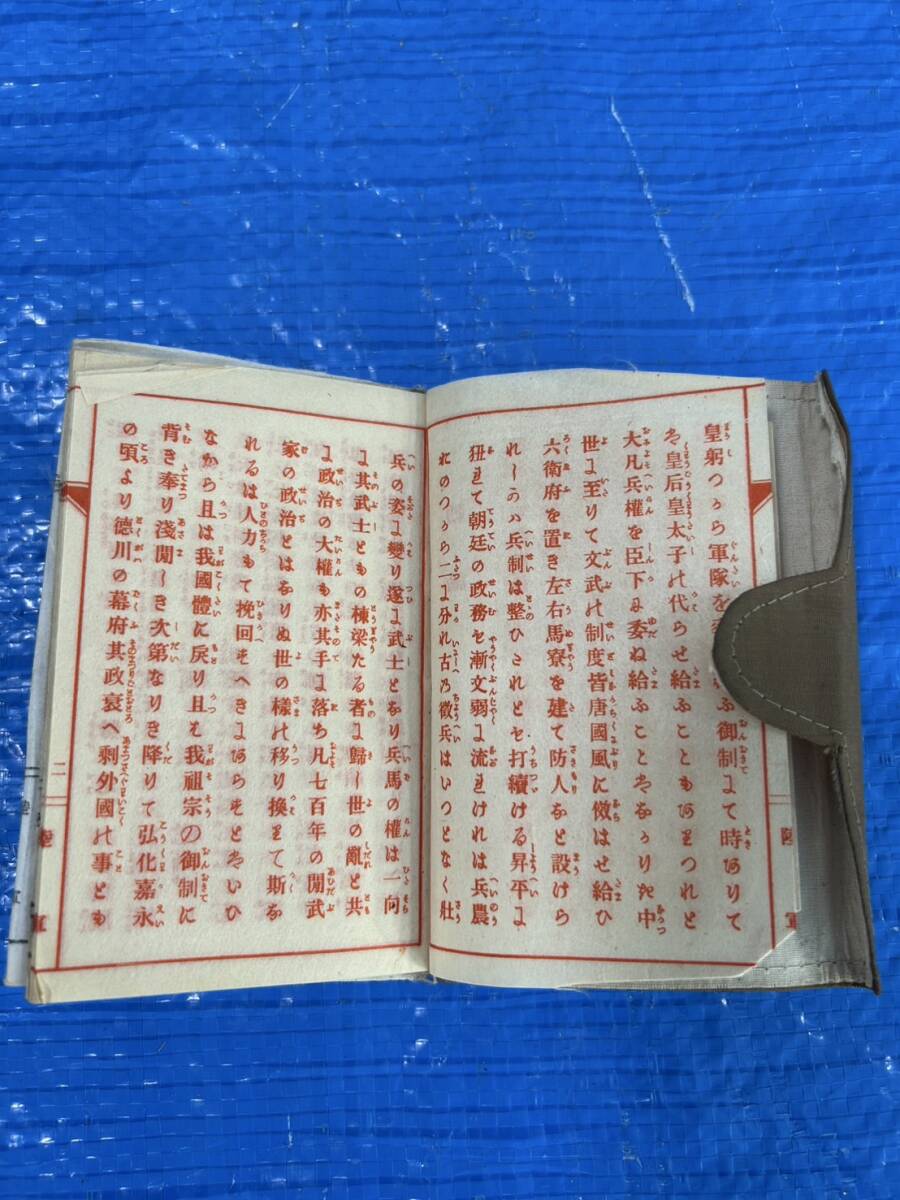 皇躬つから軍隊を
ふ御制にて時ありて
は皇后皇太子の代らせ給ふこともありつれと
大凡兵權を臣下に委ね給ふことはなかりき中
世に至りて文武の制度皆唐國風に傚はせ給ひ
六衛府を置き左右馬寮を建て防人なと設けら
れしかは兵制は整ひたれとも打續ける昇平に
狃れて朝廷の政務も漸文弱に流れけれは兵農
おのつから二に分れ古の徴兵はいつとなく壯
兵の姿に變り遂に武士となり兵馬の權は一向
に其武士ともの棟梁たる者に歸し世の亂と共
に政治の大權も亦其手に落ち凡七百年の間武
家の政治とはなりぬ世の樣の移り換りて斯な
れるは人力もて挽回すへきにあらすとはいひ
なから且は我國體に戾り且は我祖宗の御制に
背き奉り淺間しき次第なりき降りて弘化嘉永
の頃より德川の幕府其政衰へ剩外國の事とも
二
陸
軍
陸
軍